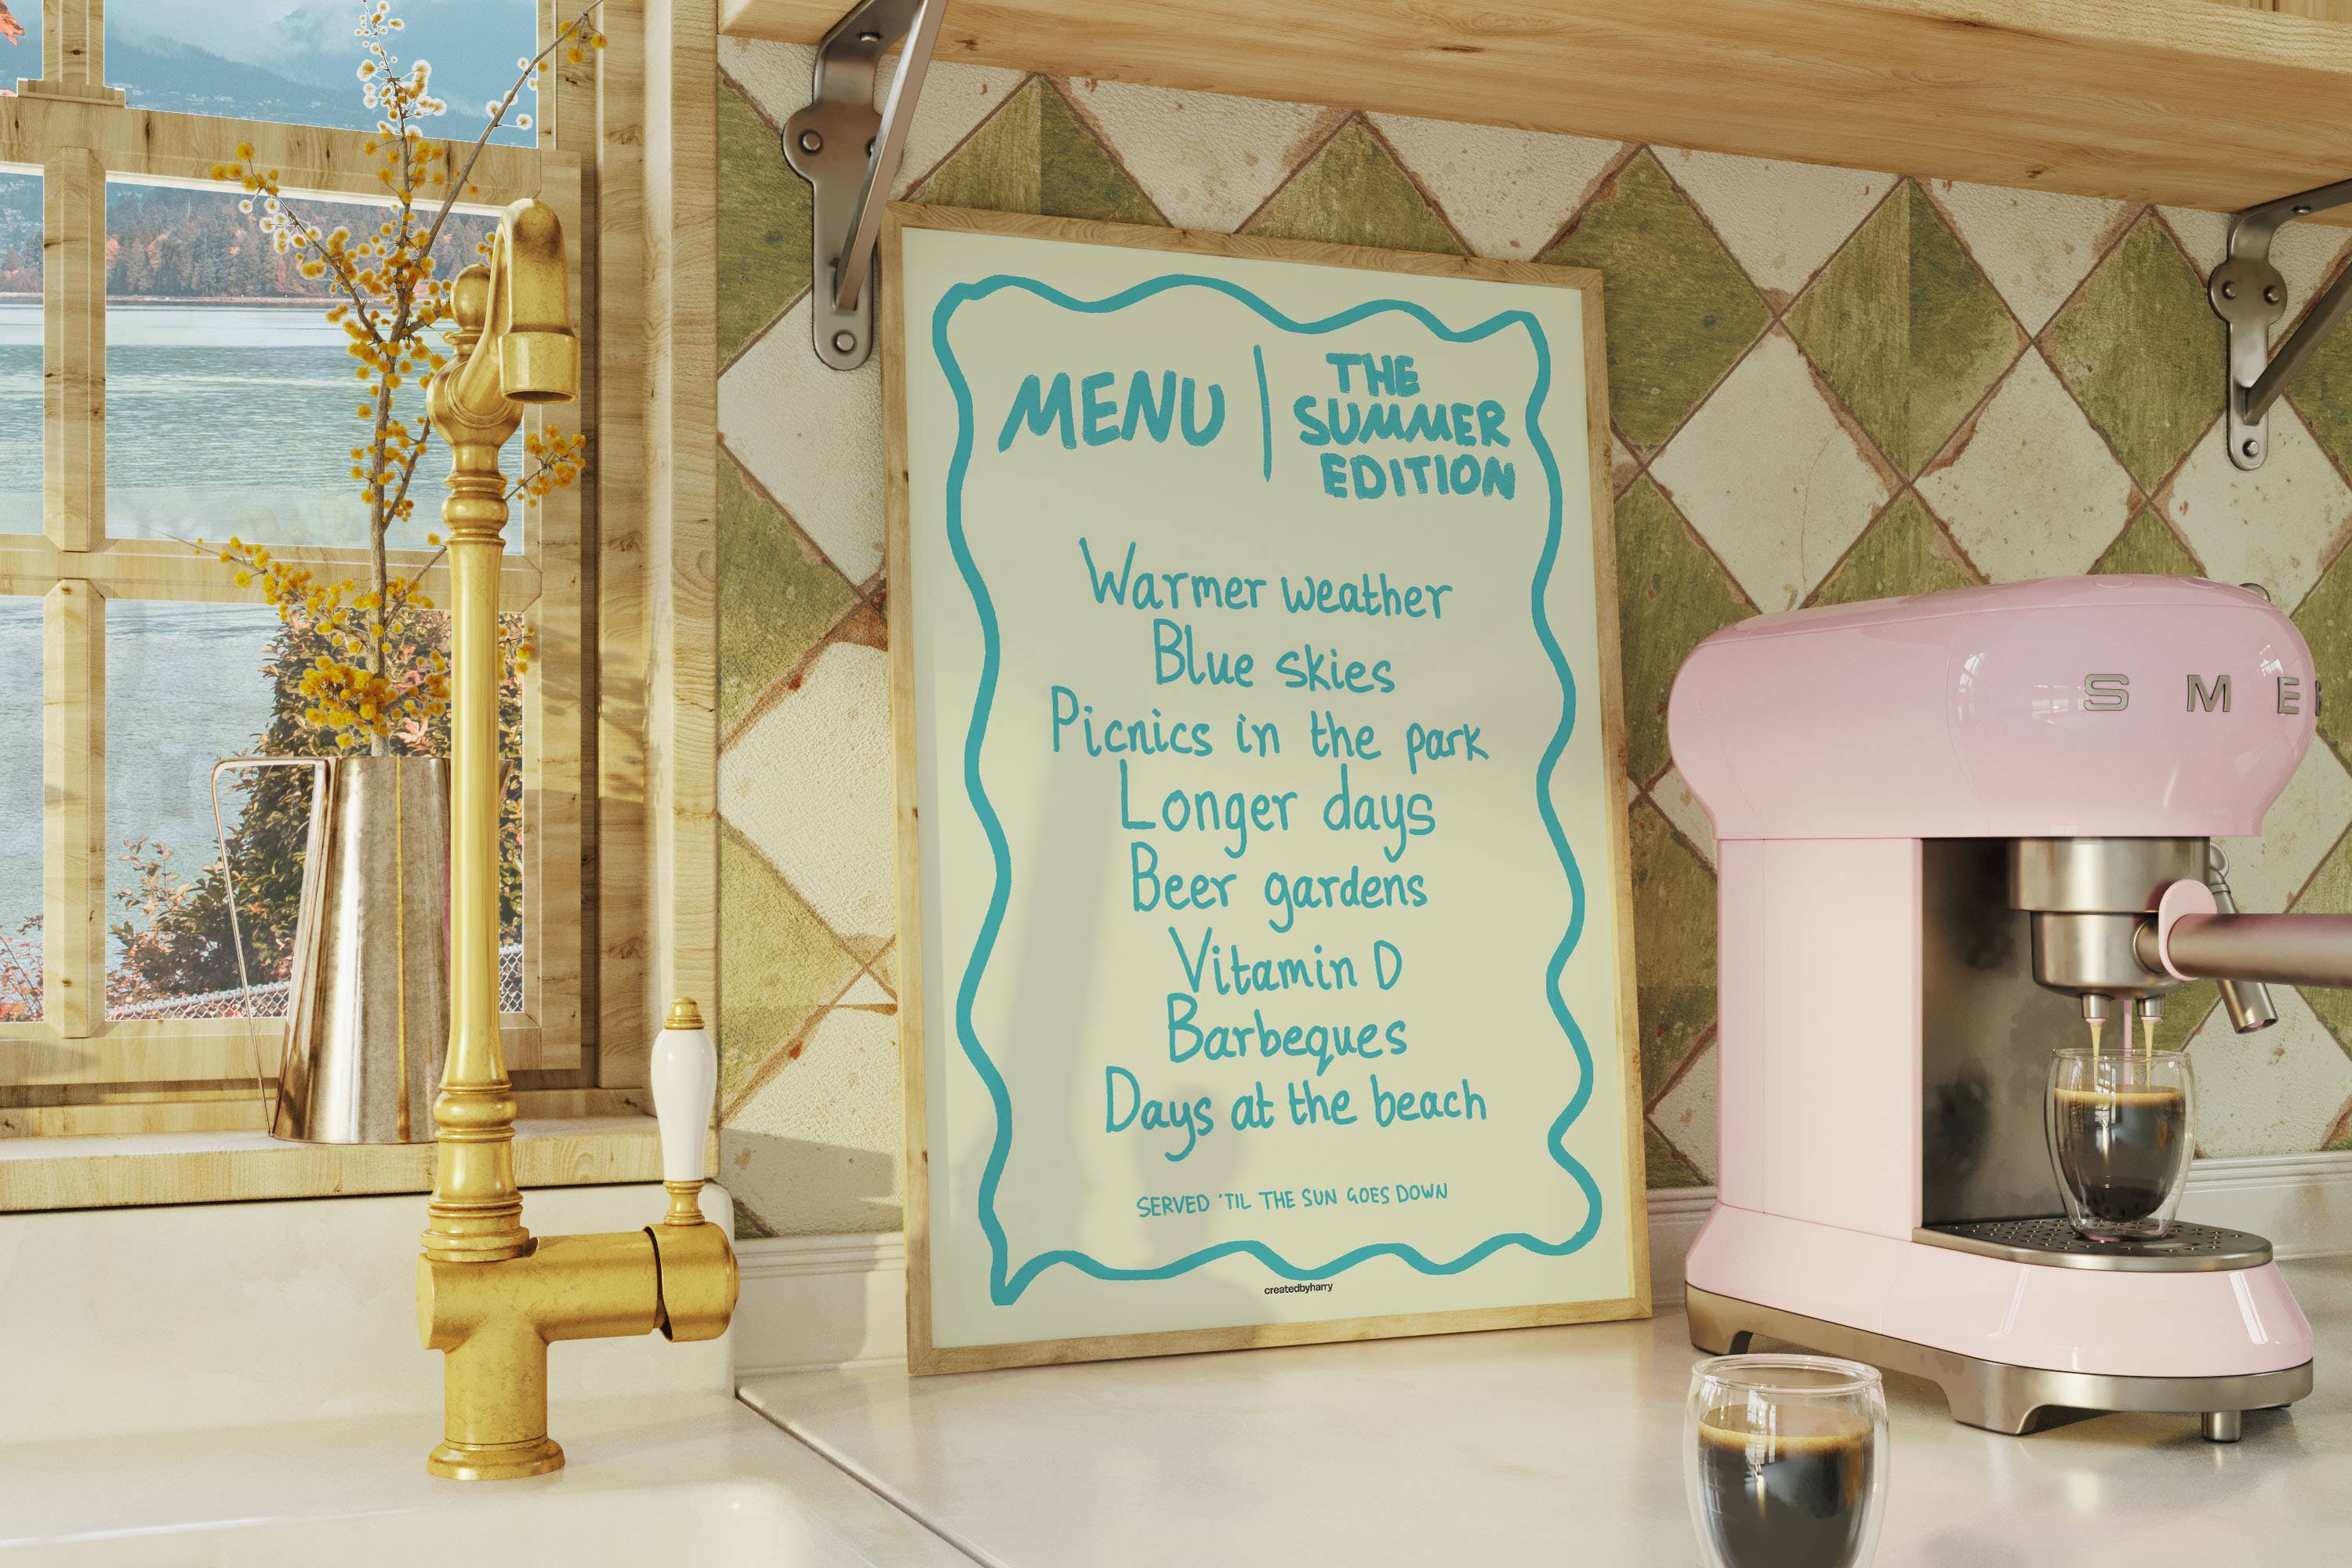 MENU
THE
SUMMER
EDITION
Warmer weather
Blue skies
Picnics in the park
Longer days
Beer gardens
Vitamin D
Barbeques
Days at the beach
SERVED 'TIL THE SUN GOES DOWN
createdbyharry
SME